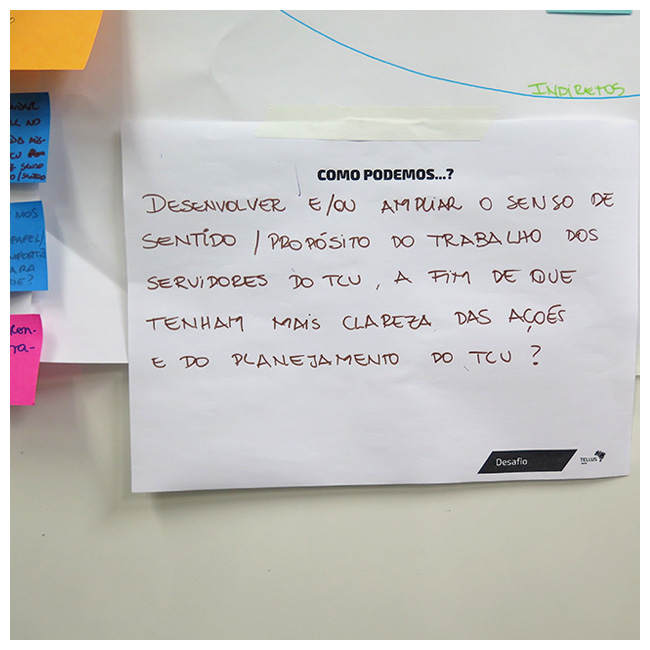 INDIRETOS
COMO PODEMOS...?
DESENVOLVER E/OU AMPLIAR O SENSO DE
SENTIDO / PROPÓSITO DO TRABALHO DOS
SERVIDORES DO TCU, A FIM DE QUE
TENHAM MAIS CLAREZA DAS AÇÕES
E DO PLANEJAMENTO DO TCU?
Desafio
TELLUS